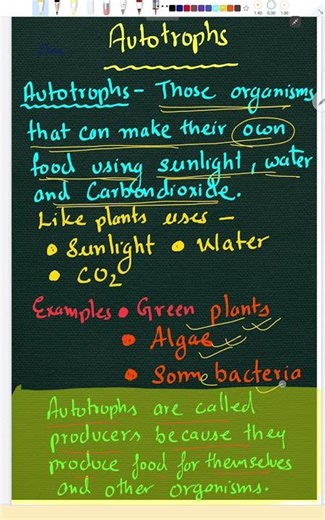 Autotrophs
Autotrophs - Those organisms
that can make their own
food using sunlight, water
and Carbondioxide.
Like plants uses -
• Sunlight • Water
• CO2
Examples • Green plants
• Algae
• Some bacteria
Autotrophs are called
producers because they
produce food for themselves
and other organisms.